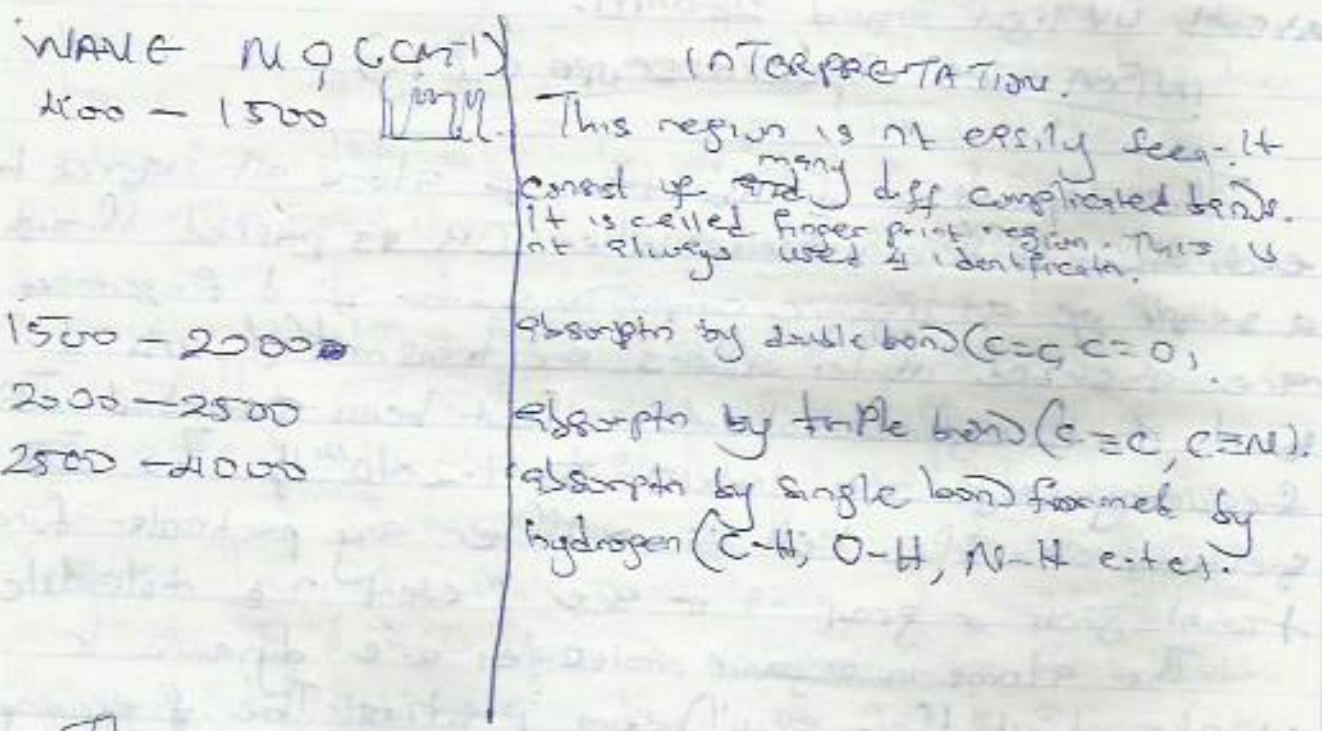 WAVE NO (CM-1)
INTERPRETATION.
400 - 1500
This region is nt easily seen. It
consist of many diff complicated bands.
It is called finger print region. This is
nt always used 4 identificatn.
1500 - 2000
absorptn by double bond (C=C, C=O,
2000 - 2500
absorptn by triple bond (C≡C, C≡N).
2500 - 4000
absorptn by single bond formed by
hydrogen (C-H, O-H, N-H e.t.c).